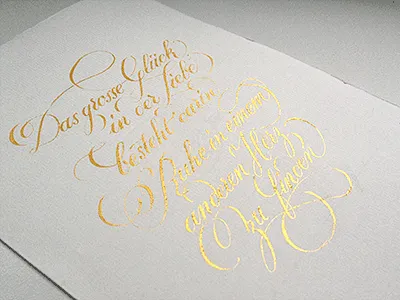 Das grosse Glück
in der Liebe
besteht darin
Ruhe in einem
anderen Herz
zu finden